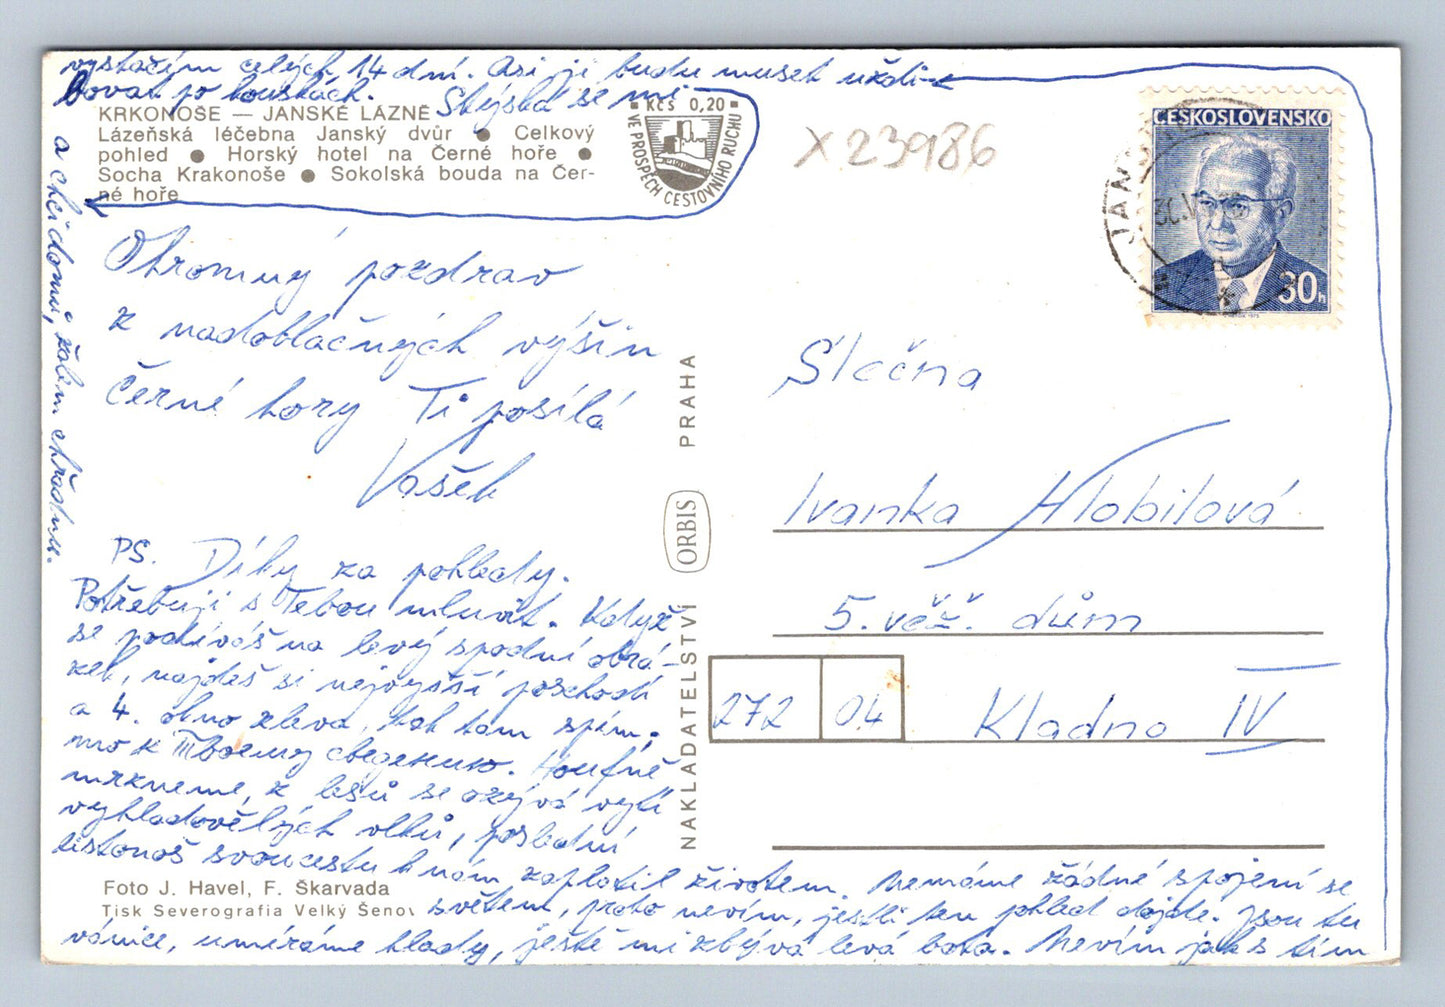 KRKONOŠE — JANSKÉ LÁZNĚ
Lázeňská léčebna Janský dvůr ● Celkový
pohled ● Horský hotel na Černé hoře ●
Socha Krakonoše ● Sokolská bouda na Čer-
né hoře
Kčs 0,20
VE PROSPĚCH CESTOVNÍHO RUCHU
X 23986
ČESKOSLOVENSKO
30h
Ohromný pozdrav
z nadoblačných výšin
Černé hory Ti posílá
Vašek
PS. Díky za pohledy.
Potřebuji s Tebou mluvit. Když
se podíváš na levý spodní obrá-
zek, najdeš si nejvyšší poschodí
a 4. okno zleva, tak tam spím,
to k Твоему сведению. Houfně
mrzneme, z lesů se ozývá vytí
vyhladovělých vlků, poslední
listonoš svou cestu k nám zaplatil životem. Nemáme žádné spojení se
světem, proto nevím, jestli ten pohled dojde. Jsou tu
vánice, umíráme hlady, ještě mi zbývá levá bota. Nevím jak s tím
vystačím celých 14 dní. Asi ji budu muset uždi-
bovat po kouskách. Stýská se mi
a chci domů, žalem chřadnu.
Slečna
Ivanka Hlobilová
5. věž. dům
272 04 Kladno IV
NAKLADATELSTVÍ ORBIS PRAHA
Foto J. Havel, F. Škarvada
Tisk Severografia Velký Šenov